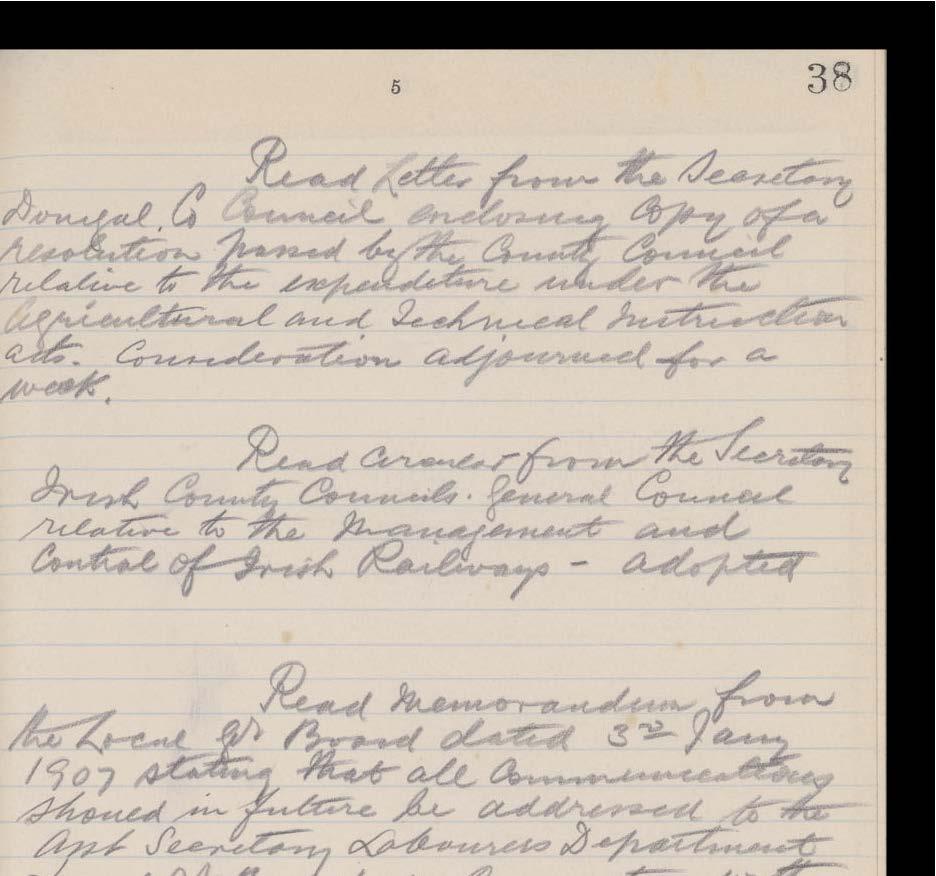 5
38
Read Letter from the Secretary
Donegal Co Council enclosing copy of a
resolution passed by the County Council
relative to the expenditure under the
Agricultural and Technical Instruction
acts. Consideration adjourned for a
week.
Read circular from the Secretary
Irish County Councils. General Council
relative to the Management and
Control of Irish Railways - adopted
Read Memorandum from
the Local Gt Board dated 3rd Jany
1907 stating that all Communications
should in future be addressed to the
Asst Secretary Labourers Department